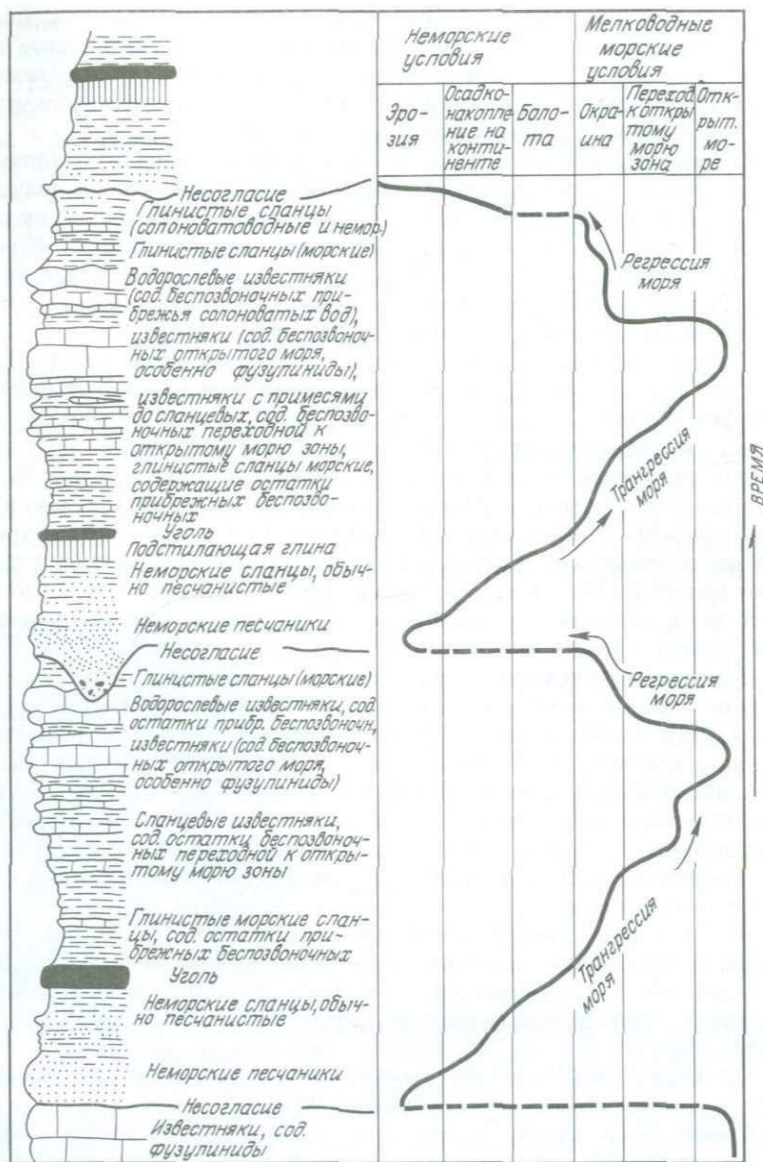 Неморские
условия
Мелководные
морские
условия
Эро-
зия
Осадко-
накопле-
ние на
конти-
ненте
Боло-
та
Окра-
ина
Переход.
к откры
тому
морю
зона
Отк-
рыт.
мо-
ре
Несогласие
Глинистые сланцы
(солоноватоводные и немор.)
Глинистые сланцы (морские)
Водорослевые известняки
(сод. беспозвоночных при-
брежья солоноватых вод),
известняки (сод. беспозвоноч-
ных открытого моря,
особенно фузулиниды),
известняки с примесями
до сланцевых, сод. беспозво-
ночных переходной к
открытому морю зоны,
глинистые сланцы морские,
содержащие остатки
прибрежных беспозво-
ночных
Уголь
Подстилающая глина
Неморские сланцы, обыч-
но песчанистые
Неморские песчаники
Несогласие
Глинистые сланцы (морские)
Водорослевые известняки, сод.
остатки прибр. беспозвоночн,
известняки (сод. беспозвоноч-
ных открытого моря,
особенно фузулиниды)
Сланцевые известняки,
сод. остатки беспозвоноч-
ных переходной к откры-
тому морю зоны
Глинистые морские слан-
цы, сод. остатки при-
брежных беспозвоночных
Уголь
Неморские сланцы, обыч-
но песчанистые
Неморские песчаники
Несогласие
Известняки, сод.
фузулиниды
Регрессия
моря
Трангрессия
моря
Регрессия
моря
Трангрессия
моря
ВРЕМЯ